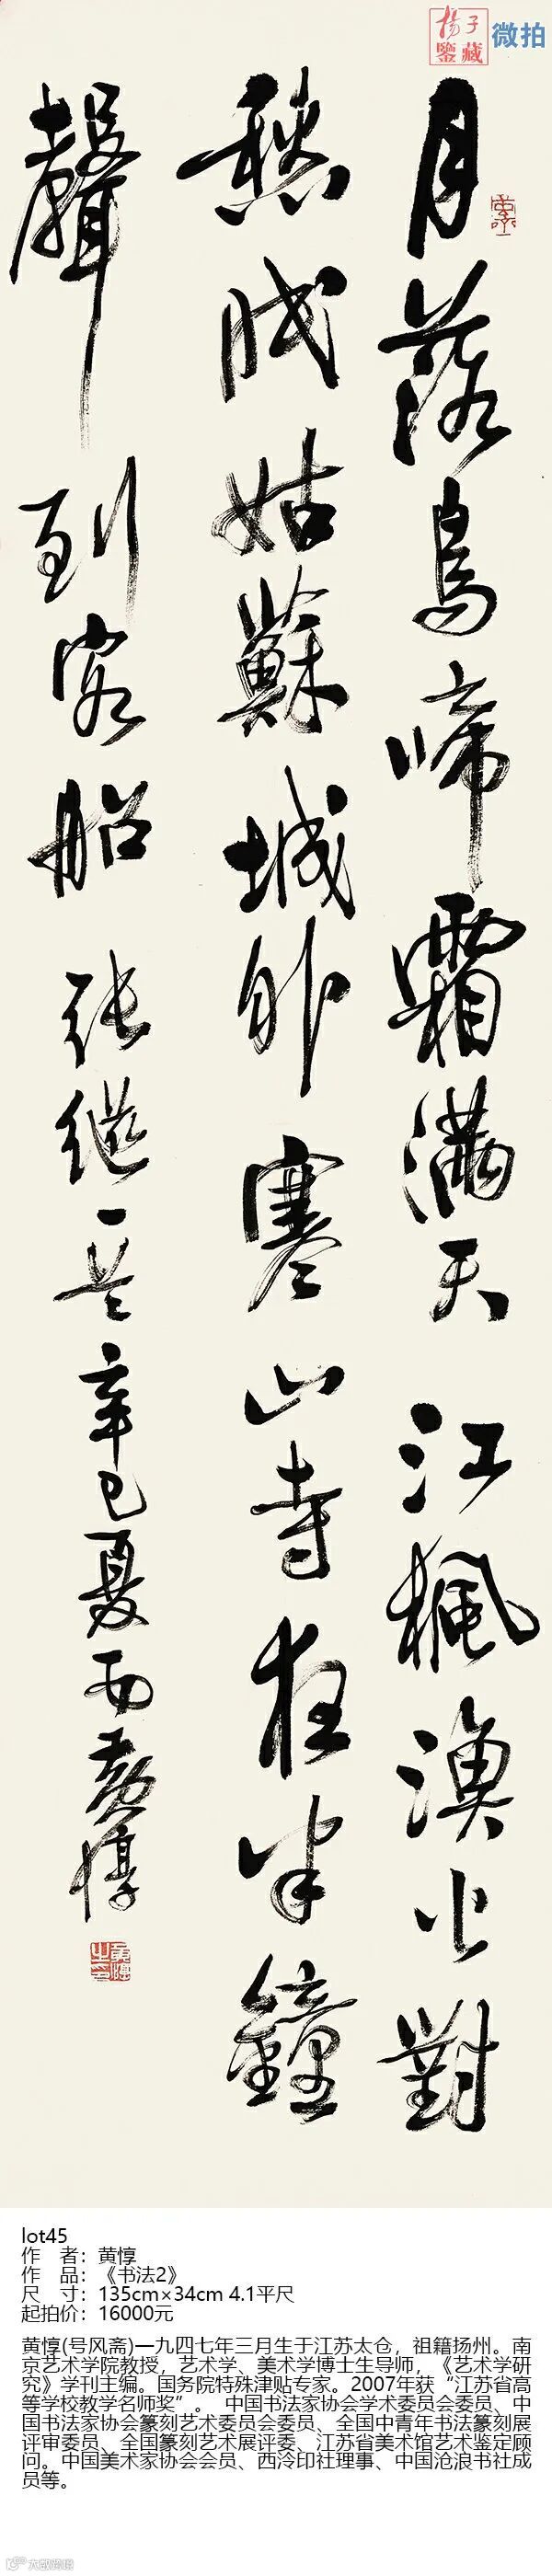 楊子
鑒藏
微拍
月落烏啼霜滿天江楓漁火對
愁眠姑蘇城外寒山寺夜半鐘
聲到客船 張繼一 辛巳夏 黃惇
lot45
作 者：黄惇
作 品：《书法2》
尺 寸：135cm×34cm 4.1平尺
起拍价：16000元
黄惇(号风斋)一九四七年三月生于江苏太仓，祖籍扬州。南
京艺术学院教授，艺术学、美术学博士生导师，《艺术学研
究》学刊主编。国务院特殊津贴专家。2007年获“江苏省高
等学校教学名师奖”。 中国书法家协会学术委员会委员、中
国书法家协会篆刻艺术委员会委员、全国中青年书法篆刻展
评审委员、全国篆刻艺术展评委、江苏省美术馆艺术鉴定顾
问。中国美术家协会会员、西泠印社理事、中国沧浪书社成
员等。
大数跨境